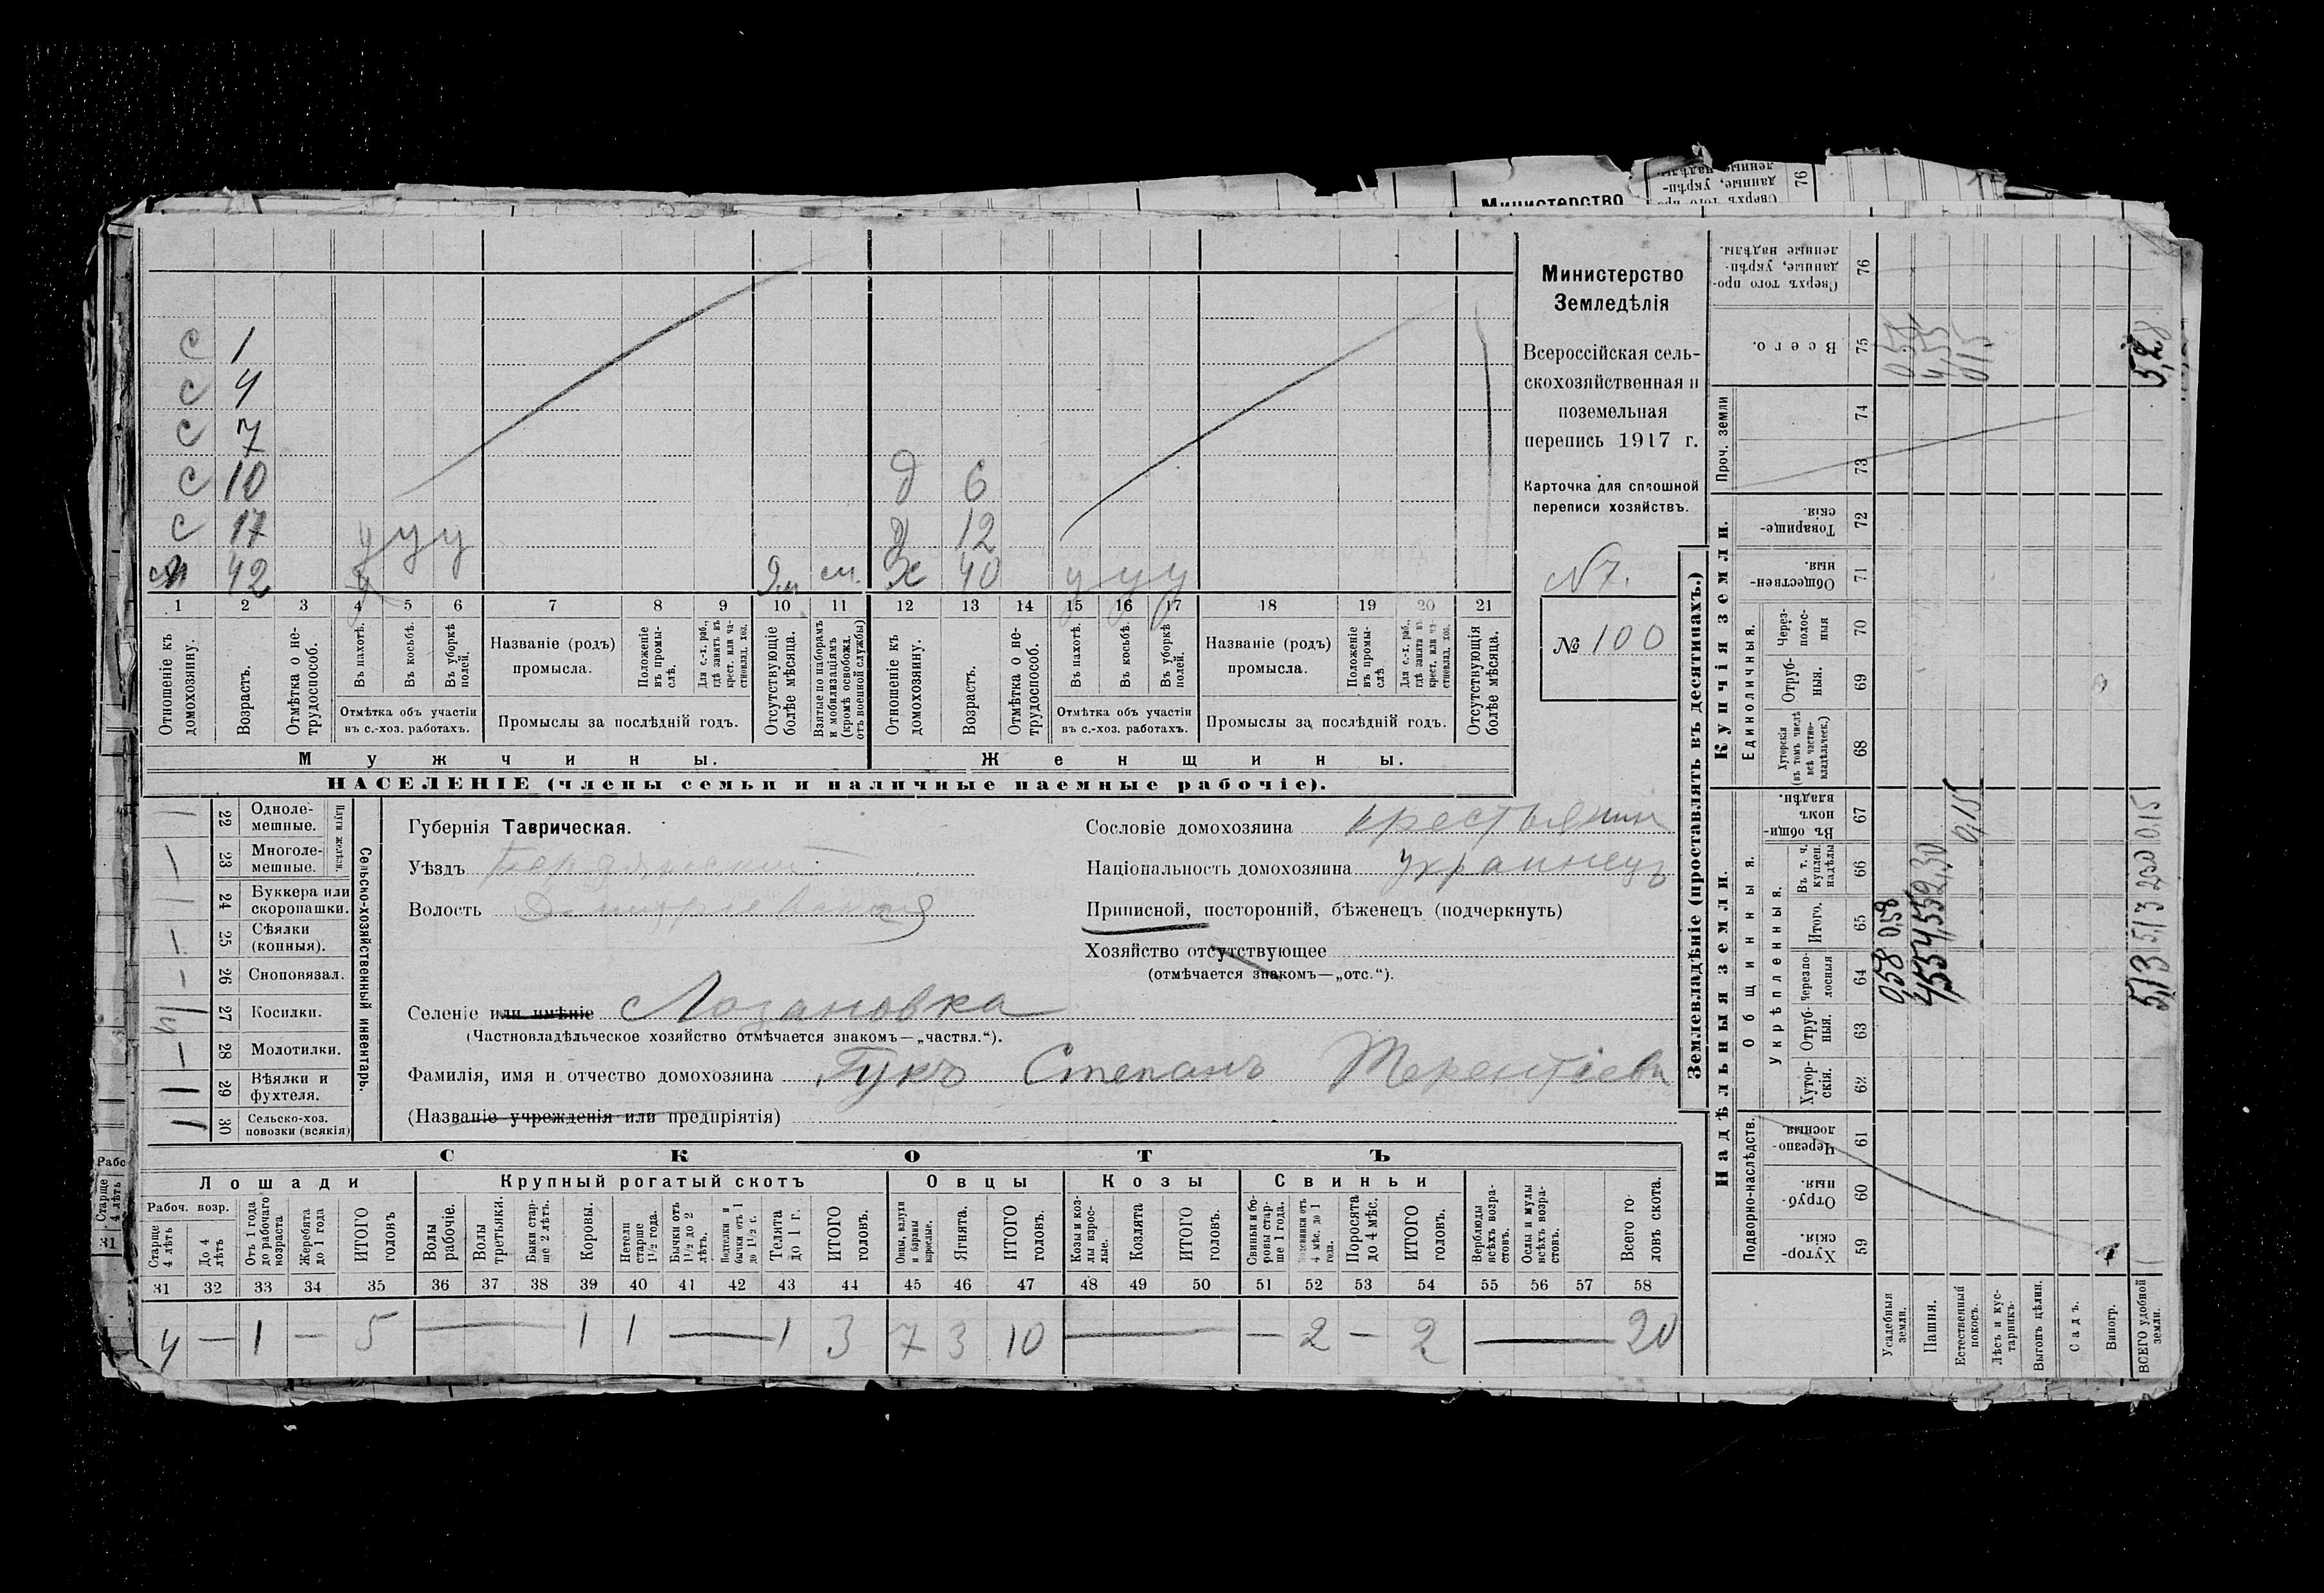 Министерство
Земледѣлія
Всероссійская сель-
скохозяйственная и
поземельная
перепись 1917 г.
Карточка для сплошной
переписи хозяйствъ.
N 7.
№ 100
с 1
с 4
с 7
с 10 д 6
с 17 у у у д 12
42 ж 40 у у у
1 2 3 4 5 6 7 8 9 10 11 12 13 14 15 16 17 18 19 20 21
Отношеніе къ домохозяину.
Возрастъ.
Отмѣтка о не-трудоспособ.
Въ пахотѣ.
Въ косьбѣ.
Въ уборкѣ полей.
Отмѣтка объ участіи въ с.-хоз. работахъ.
Названіе (родъ) промысла.
Положеніе въ промы-слѣ.
Для с.-х. раб., гдѣ занятъ въ крест. или ча-стновлад. хоз.
Промыслы за послѣдній годъ.
Отсутствующіе болѣе мѣсяца.
Взятые по наборамъ и мобилизаціямъ (кромѣ освобожд. отъ военной службы)
Отношеніе къ домохозяину.
Возрастъ.
Отмѣтка о не-трудоспособ.
Въ пахотѣ.
Въ косьбѣ.
Въ уборкѣ полей.
Отмѣтка объ участіи въ с.-хоз. работахъ.
Названіе (родъ) промысла.
Положеніе въ промы-слѣ.
Для с.-х. раб., гдѣ занята въ крест. или ча-стновлад. хоз.
Промыслы за послѣдній годъ.
Отсутствующія болѣе мѣсяца.
Мужчины. Женщины.
НАСЕЛЕНІЕ (члены семьи и наличные наемные рабочіе).
Сельско-хозяйственный инвентарь.
22 Одноле-мешные.
23 Многоле-мешные.
24 Буккера или скоропашки.
25 Сѣялки (конныя).
26 Сноповязал.
27 Косилки.
28 Молотилки.
29 Вѣялки и фухтеля.
30 Сельско-хоз. повозки (всякія)
Губернія Таврическая.
Уѣздъ Бердянскій
Волость
Сословіе домохозяина крестьянин
Національность домохозяина украинецъ
Приписной, посторонній, бѣженецъ (подчеркнуть)
Хозяйство отсутствующее
(отмѣчается знакомъ—„отс.“).
Селеніе или имѣніе Лозановка
(Частновладѣльческое хозяйство отмѣчается знакомъ—„частвл.“).
Фамилія, имя и отчество домохозяина Гукъ Степанъ Терентіеви
(Названіе учрежденія или предпріятія)
СКОТЪ
Лошади Крупный рогатый скотъ Овцы Козы Свиньи
Рабоч. возр.
Старще 4 лѣтъ
До 4 лѣтъ
Отъ 1 года до рабочаго возраста
Жеребята до 1 года
ИТОГО головъ
Волы рабочіе.
Волы третьяки.
Быки стар-ше 2 лѣтъ.
Коровы.
Нетели старше 1½ года.
Бычки отъ 1½ до 2 лѣтъ.
Подтелки и бычки отъ 1 до 1½ г.
Телята до 1 г.
ИТОГО головъ.
Овцы, валухи и бараны взрослые.
Ягнята.
ИТОГО головъ.
Козы и коз-лы взрос-лые.
Козлята
ИТОГО головъ.
Свиньи и бо-ровы стар-ше 1 года.
Поросята до 4 мѣс.
ИТОГО головъ.
Верблюды всѣхъ возра-стовъ.
Ослы и мулы всѣхъ возра-стовъ.
Всего го-ловъ скота.
31 32 33 34 35 36 37 38 39 40 41 42 43 44 45 46 47 48 49 50 51 52 53 54 55 56 57 58
4 — 1 — 5 — 1 1 — 1 3 7 3 10 — — 2 — 2 — 20
Землевладѣніе (проставлять въ десятинахъ.)
Надѣльныя земли. Купчія земли.
Подворно-наслѣдств. Общинныя. Единоличныя. Проч. земли
Укрѣпленныя.
59 Хутор-скія.
60 Отруб-ныя.
61 Черезпо-лосныя.
62 Хутор-скія.
63 Отруб-ныя.
64 Черезпо-лосныя
65 Итого.
66 Въ т. ч. куплен. надѣлы
67 Въ общин-номъ владѣн.
68 Хуторскія (въ томъ числѣ всѣ частно-владѣльческ.)
69 Отруб-ныя.
70 Через-полос-ныя
71 Обществен-ныя.
72 Товарище-скія.
73
74
75 Всего.
76 Сверхъ того про-данные, укрѣп-ленные надѣлы.
Усадебныя земли. 0,58 0,58
Пашня. 4,55 4,55
Естественный покосъ. 0,15 0,15
Лѣсъ и кус-тарникъ.
Выгонъ цѣлин.
Садъ.
Виногр.
ВСЕГО удобной земли. 5,13 5,13 0,15 5,28